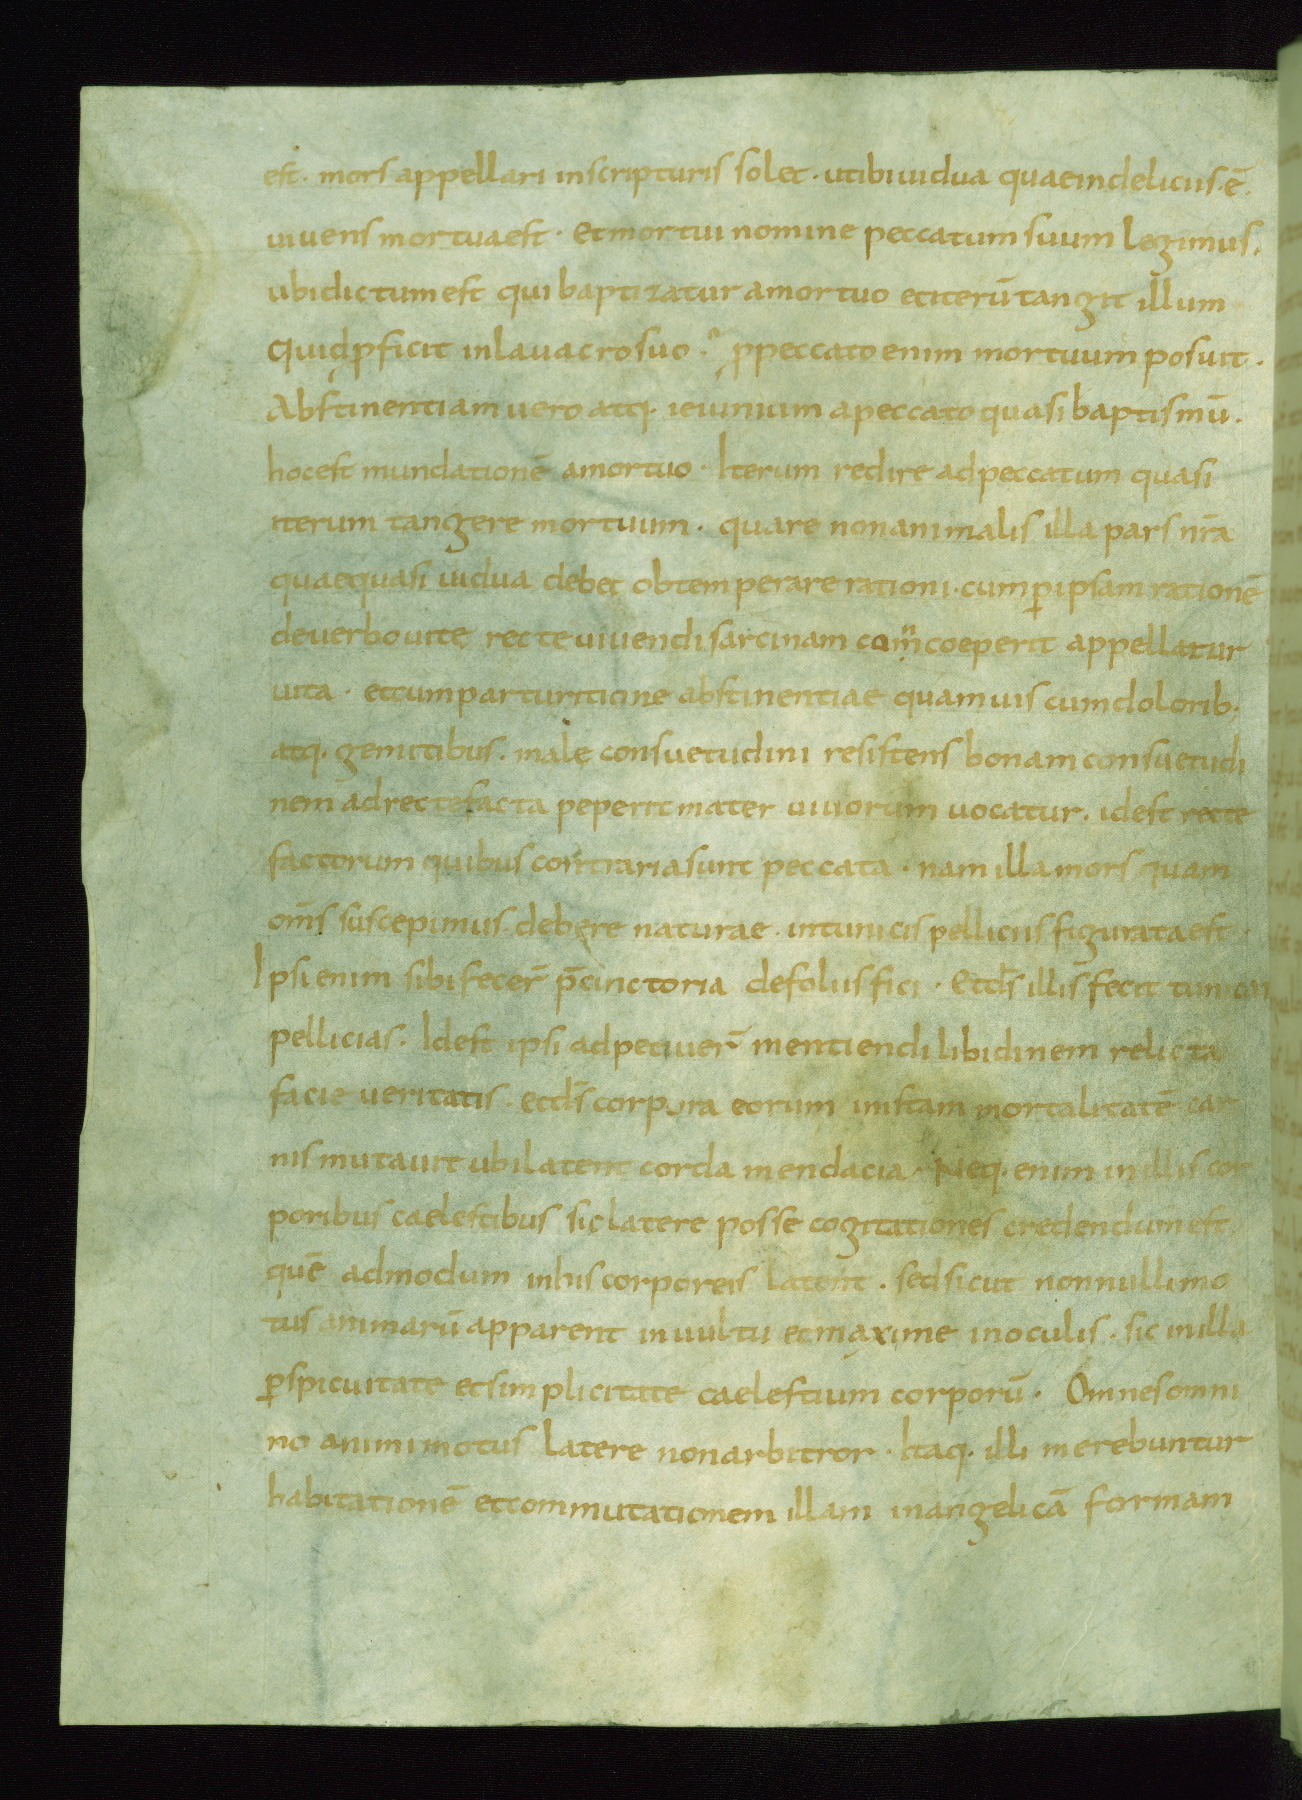 est · mors appellari inscripturis solet · utibi uidua quae indeliciis · ē ·
uiuens mortuaest · Et mortui nomine peccatum suum legimus ·
ubidictumest qui baptizatur amortuo et iterū tangit illum
Quid pficit inlauacrosuo · ppeccato enim mortuum posuit ·
Abstinentiam uero atq· ieiunium apeccato quasi baptismū ·
hocest mundationē amortuo · Iterum redire adpeccatum quasi
iterum tangere mortuum · quare nonanimalis illa pars nr̄a
quaequasi uidua debet obtemperare rationi · cum ꝑipsam rationē
deuerbouitę recteuiuendi sarcinam coeperit appellatur
uita · etcumparturitione abstinentiae quamuis cumdolorib·
atq· gemitibus · malę consuetudini resistens bonamconsuetudi
nem adrectefacta peperit mater uiuorum uocatur · idest recte
factorum quibus contrariasunt peccata · nam illamors quam
om̄s suscepimus debere naturae · intunicis pelliciis figurataest
Ipsi enim sibi fecer̄ p̄cinctoria defoliis fici · Et d̄s illis fecit tunicas
pellicias · Idest ipsi adpetiuer̄ mentiendi libidinem relicta
facie ueritatis · et d̄s corpora eorum inistam mortalitatē car
nis mutauit ubilatent corda mendacia · Neq· enim inillis cor
poribus caelestibus sic latere posse cogitationes credendumest
quē admodum inhis corporeis latent · sedsicut nonnulli mo
tus animarū apparent inuultu et maxime inoculis · sic inilla
ꝑspicuitate et simplicitate caelestium corporū · Omnes omni
no animi motus latere nonarbitror · Itaq· illi merebuntur
habitationē et commutationem illam inangelicā formam